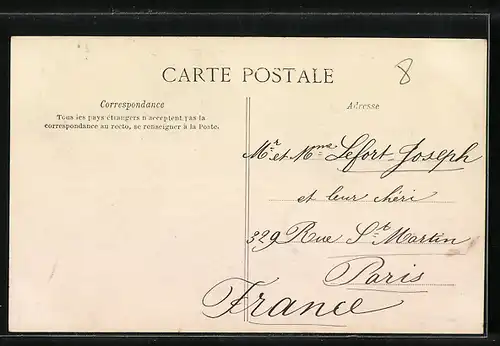 CARTE POSTALE
8
Correspondance
Tous les pays étrangers n'acceptent pas la
correspondance au recto, se renseigner à la Poste.
Adresse
Mr et Mme Lefort-Joseph
et leur chéri
329 Rue St Martin
Paris
France